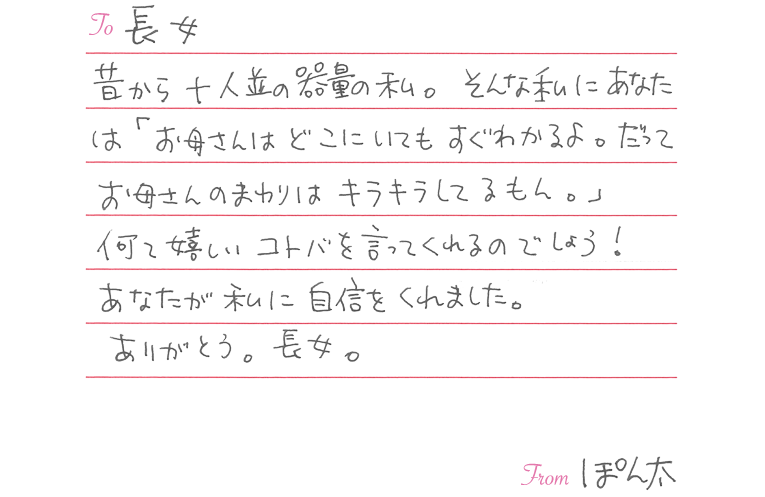 To 長女
昔から十人並の器量の私。そんな私にあなた
は「お母さんはどこにいてもすぐわかるよ。だって
お母さんのまわりはキラキラしてるもん。」
何て嬉しいコトバを言ってくれるのでしょう!
あなたが私に自信をくれました。
ありがとう。長女。
From ぽん太